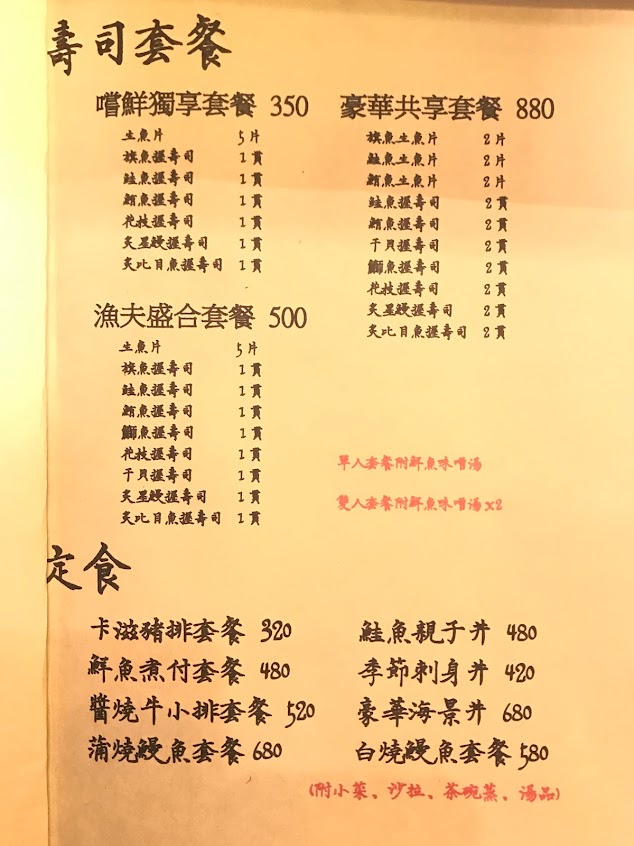 壽司套餐
嚐鮮獨享套餐 350
生魚片 5片
旗魚握壽司 1貫
鮭魚握壽司 1貫
鮪魚握壽司 1貫
花枝握壽司 1貫
炙星鰻握壽司 1貫
炙比目魚握壽司 1貫
漁夫盛合套餐 500
生魚片 5片
旗魚握壽司 1貫
鮭魚握壽司 1貫
鮪魚握壽司 1貫
鰤魚握壽司 1貫
花枝握壽司 1貫
干貝握壽司 1貫
炙星鰻握壽司 1貫
炙比目魚握壽司 1貫
豪華共享套餐 880
旗魚生魚片 2片
鮭魚生魚片 2片
鮪魚生魚片 2片
鮭魚握壽司 2貫
鮪魚握壽司 2貫
干貝握壽司 2貫
鰤魚握壽司 2貫
花枝握壽司 2貫
炙星鰻握壽司 2貫
炙比目魚握壽司 2貫
單人套餐附鮮魚味噌湯
雙人套餐附鮮魚味噌湯x2
定食
卡滋豬排套餐 320
鮮魚煮付套餐 480
醬燒牛小排套餐 520
蒲燒鰻魚套餐 680
鮭魚親子丼 480
季節刺身丼 420
豪華海景丼 680
白燒鰻魚套餐 580
(附小菜、沙拉、茶碗蒸、湯品)